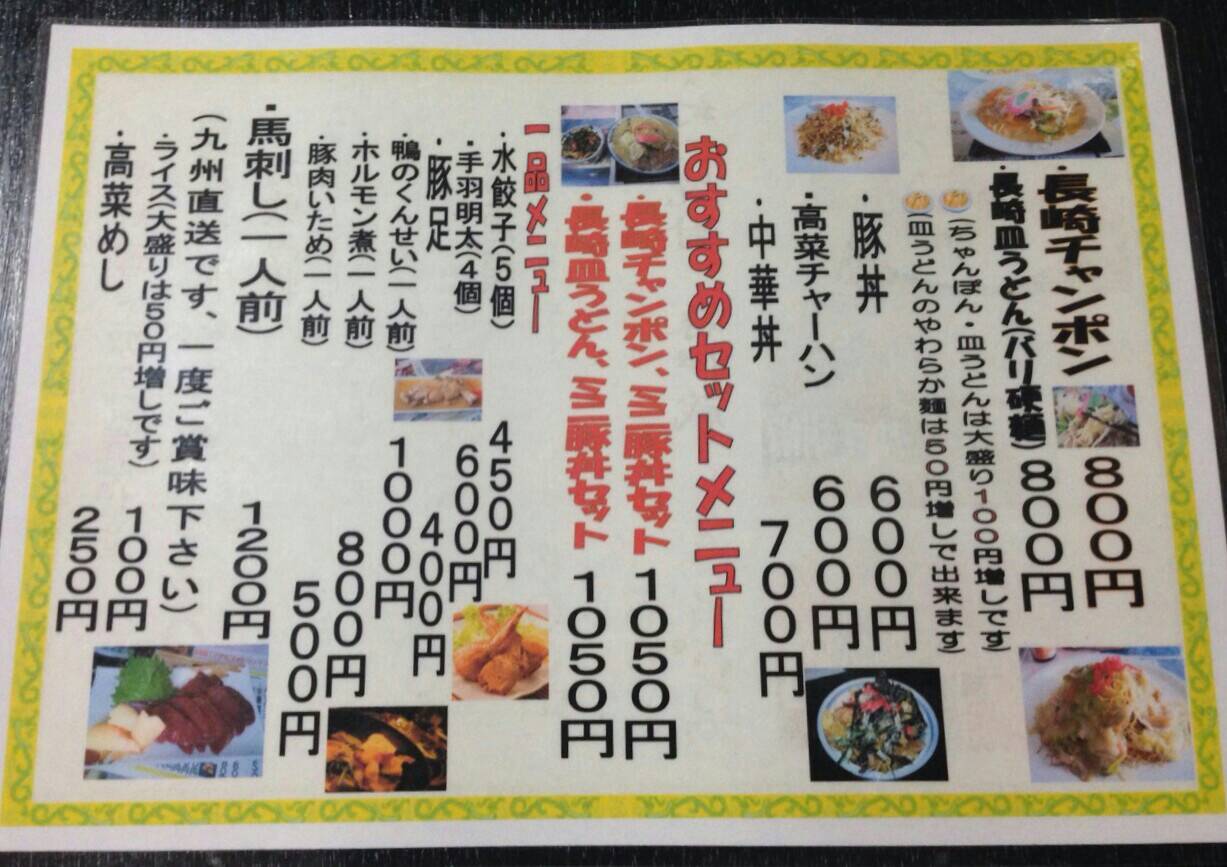 ・長崎チャンポン 800円
・長崎皿うどん(バリ硬麺) 800円
(ちゃんぽん・皿うどんは大盛り100円増しです)
(皿うどんのやわらか麺は50円増しで出来ます)
・豚丼 600円
・高菜チャーハン 600円
・中華丼 700円
おすすめセットメニュー
・長崎チャンポン、ミニ豚丼セット 1050円
・長崎皿うどん、ミニ豚丼セット 1050円
一品メニュー
・水餃子(5個) 450円
・手羽明太(4個) 600円
・豚足 400円
・鴨のくんせい(一人前) 1000円
・ホルモン煮(一人前) 800円
・豚肉いため(一人前) 500円
・馬刺し(一人前) 1200円
(九州直送です、一度ご賞味下さい)
・ライス(大盛りは50円増しです) 100円
・高菜めし 250円